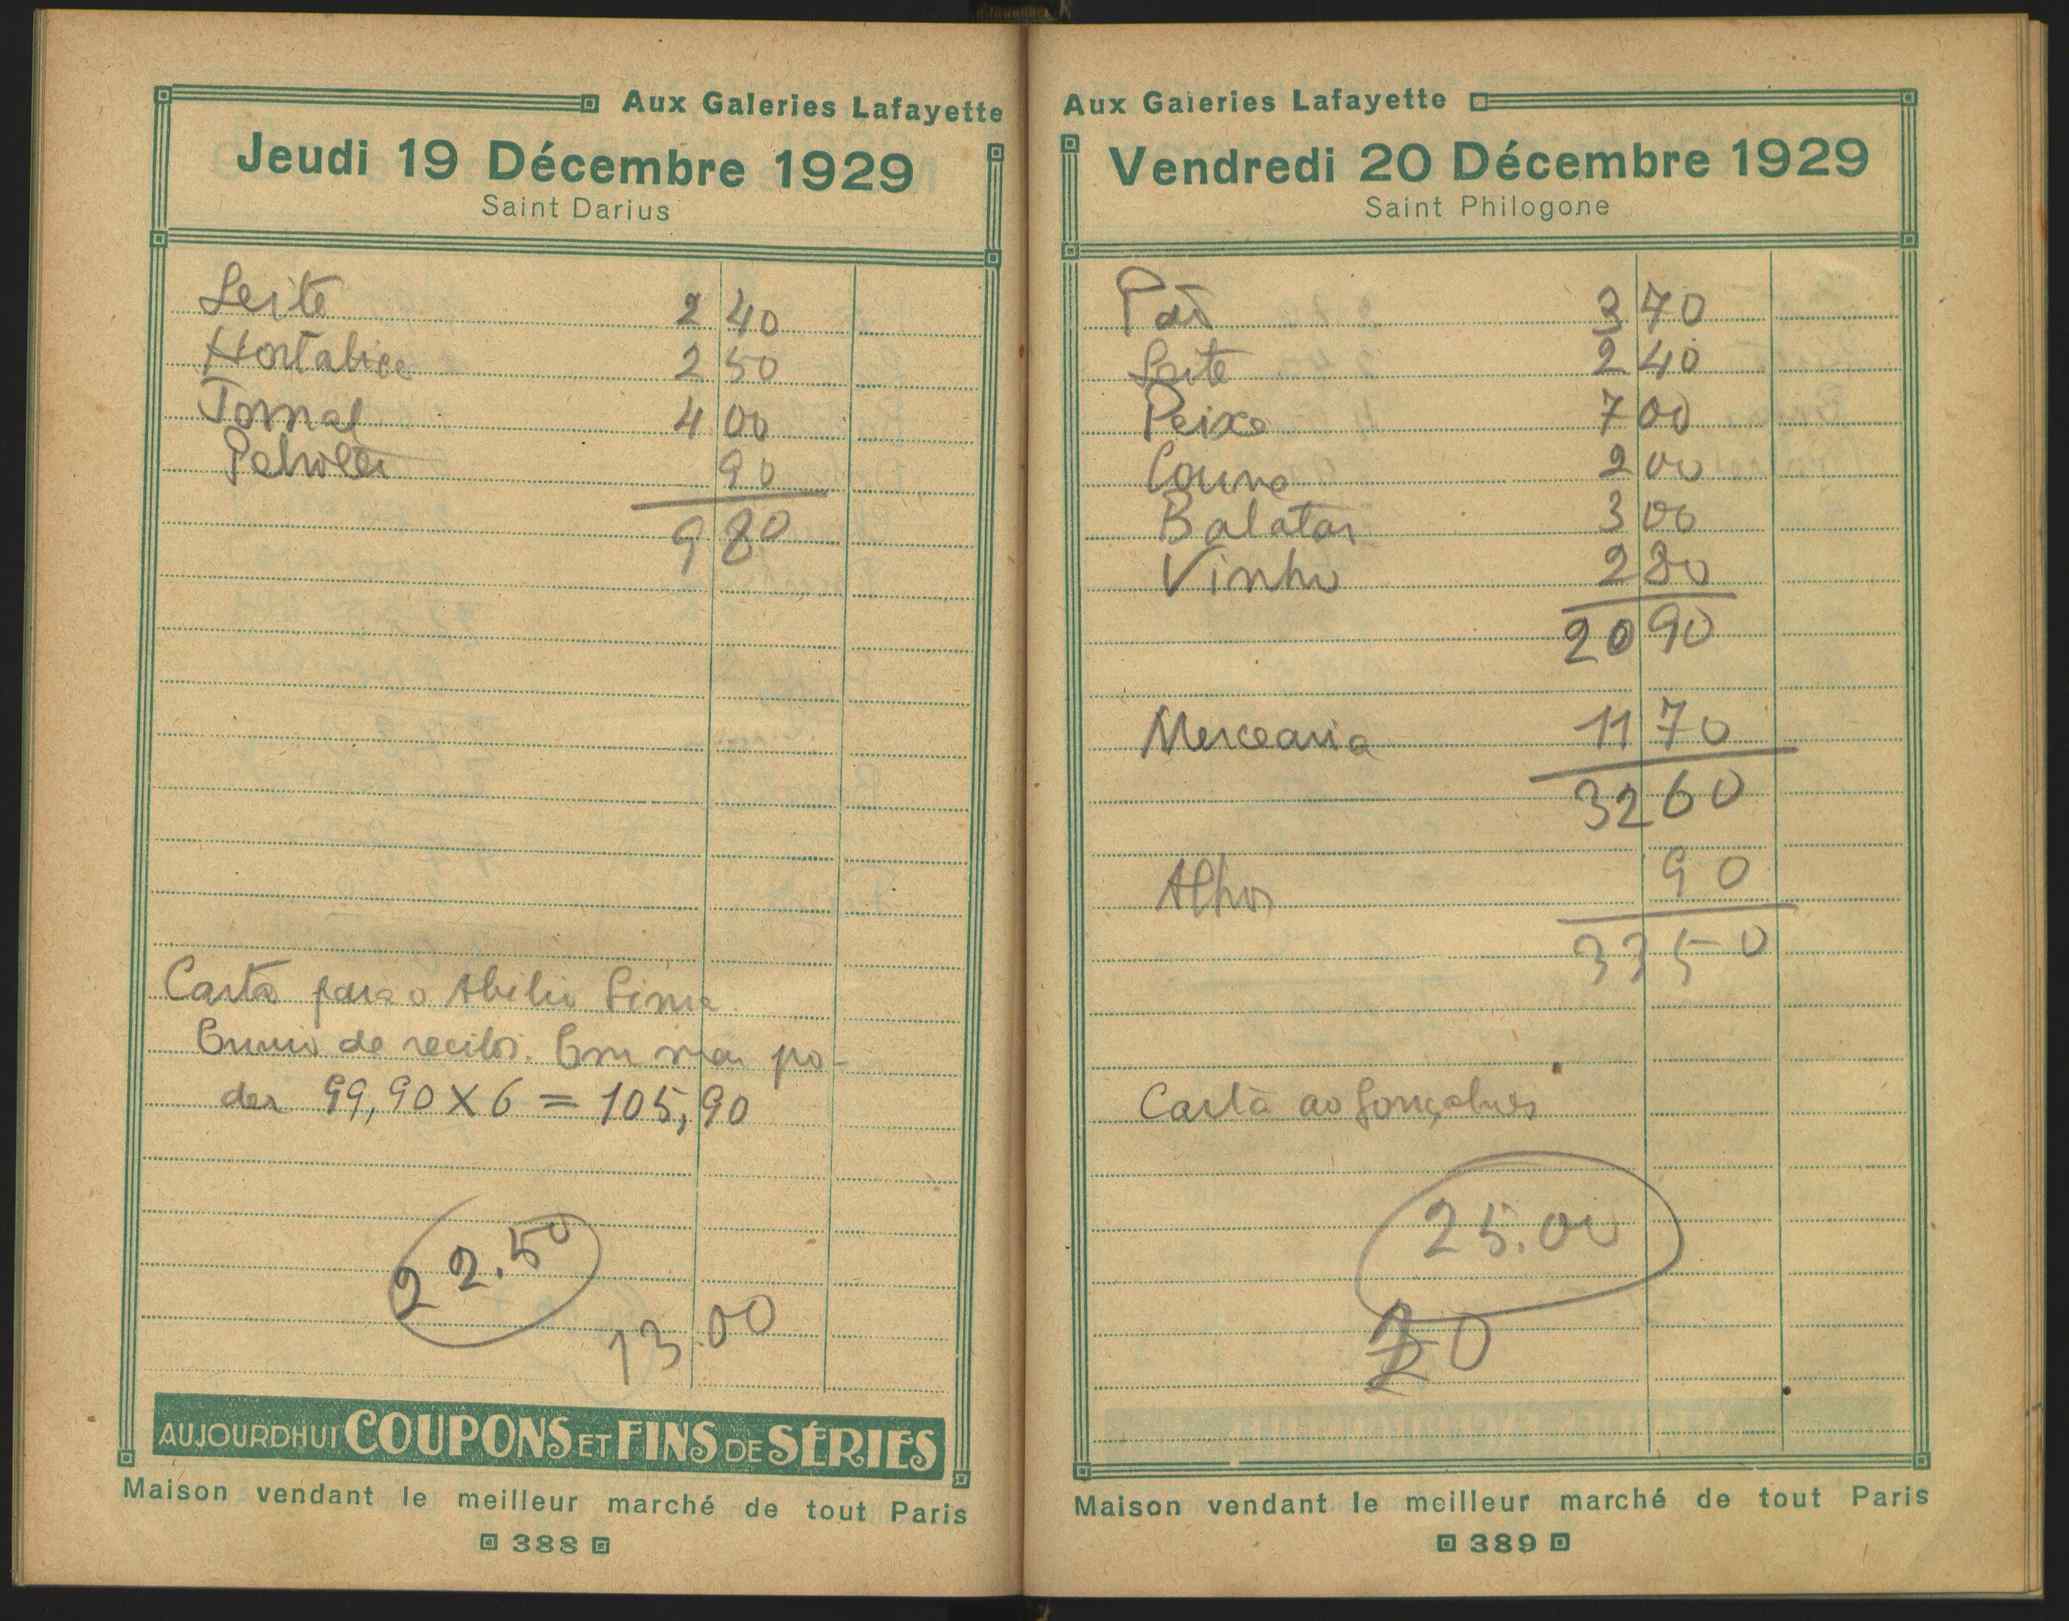 Aux Galeries Lafayette
Jeudi 19 Décembre 1929
Saint Darius
Leite 2 40
Hortalice 2 50
Jornal 4 00
Petroleo 90
9 80
Carta para o Abilio Lima
Envio de recibos. Em meu po-
der 99,90 X 6 = 105,90
22.50
13.00
AUJOURDHUI COUPONS ET FINS DE SÉRIES
Maison vendant le meilleur marché de tout Paris
388
Aux Galeries Lafayette
Vendredi 20 Décembre 1929
Saint Philogone
Pão 3 70
Leite 2 40
Peixe 7 00
Couve 2 00
Batatas 3 00
Vinho 2 80
20 90
Mercearia 11 70
32 60
Alhos 90
33 50
Carta ao Gonçalves
25.00
20
Maison vendant le meilleur marché de tout Paris
389